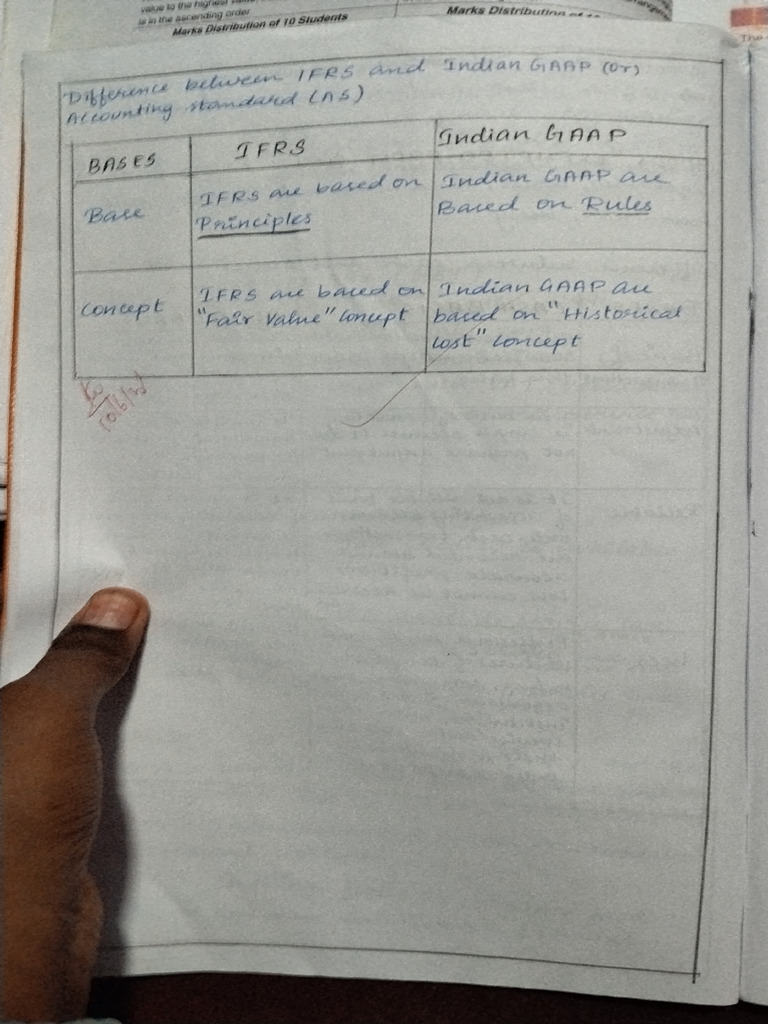 value to the highest
is in the ascending order
Marks Distribution of 10 Students
Marks Distribution of
The
Difference between IFRS and Indian GAAP (or)
Accounting standard (AS)
BASES IFRS Indian GAAP
Base IFRS are based on Principles Indian GAAP are Based on Rules
Concept IFRS are based on "Fair Value" Concept Indian GAAP are based on "Historical Cost" Concept